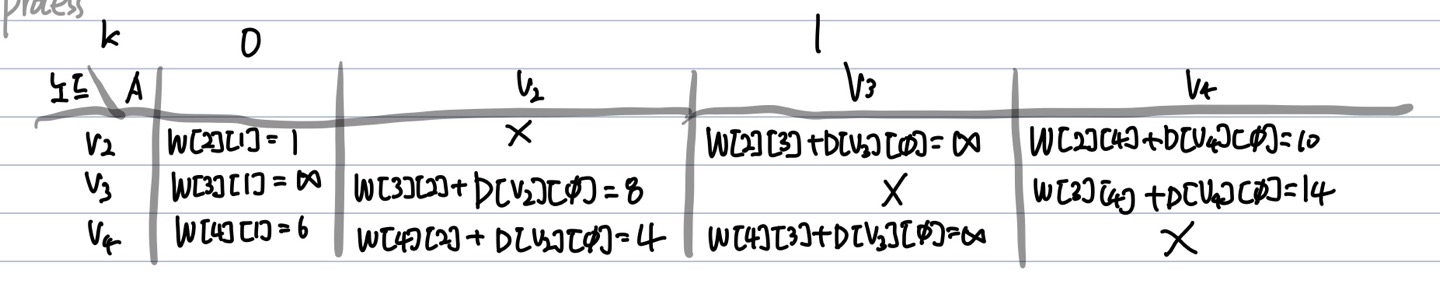 process
k 0 1
노드 A V2 V3 V4
V2 W[2][1] = 1 X W[2][3] + D[V3][ϕ] = ∞ W[2][4] + D[V4][ϕ] = 10
V3 W[3][1] = ∞ W[3][2] + D[V2][ϕ] = 8 X W[3][4] + D[V4][ϕ] = 14
V4 W[4][1] = 6 W[4][2] + D[V2][ϕ] = 4 W[4][3] + D[V3][ϕ] = ∞ X